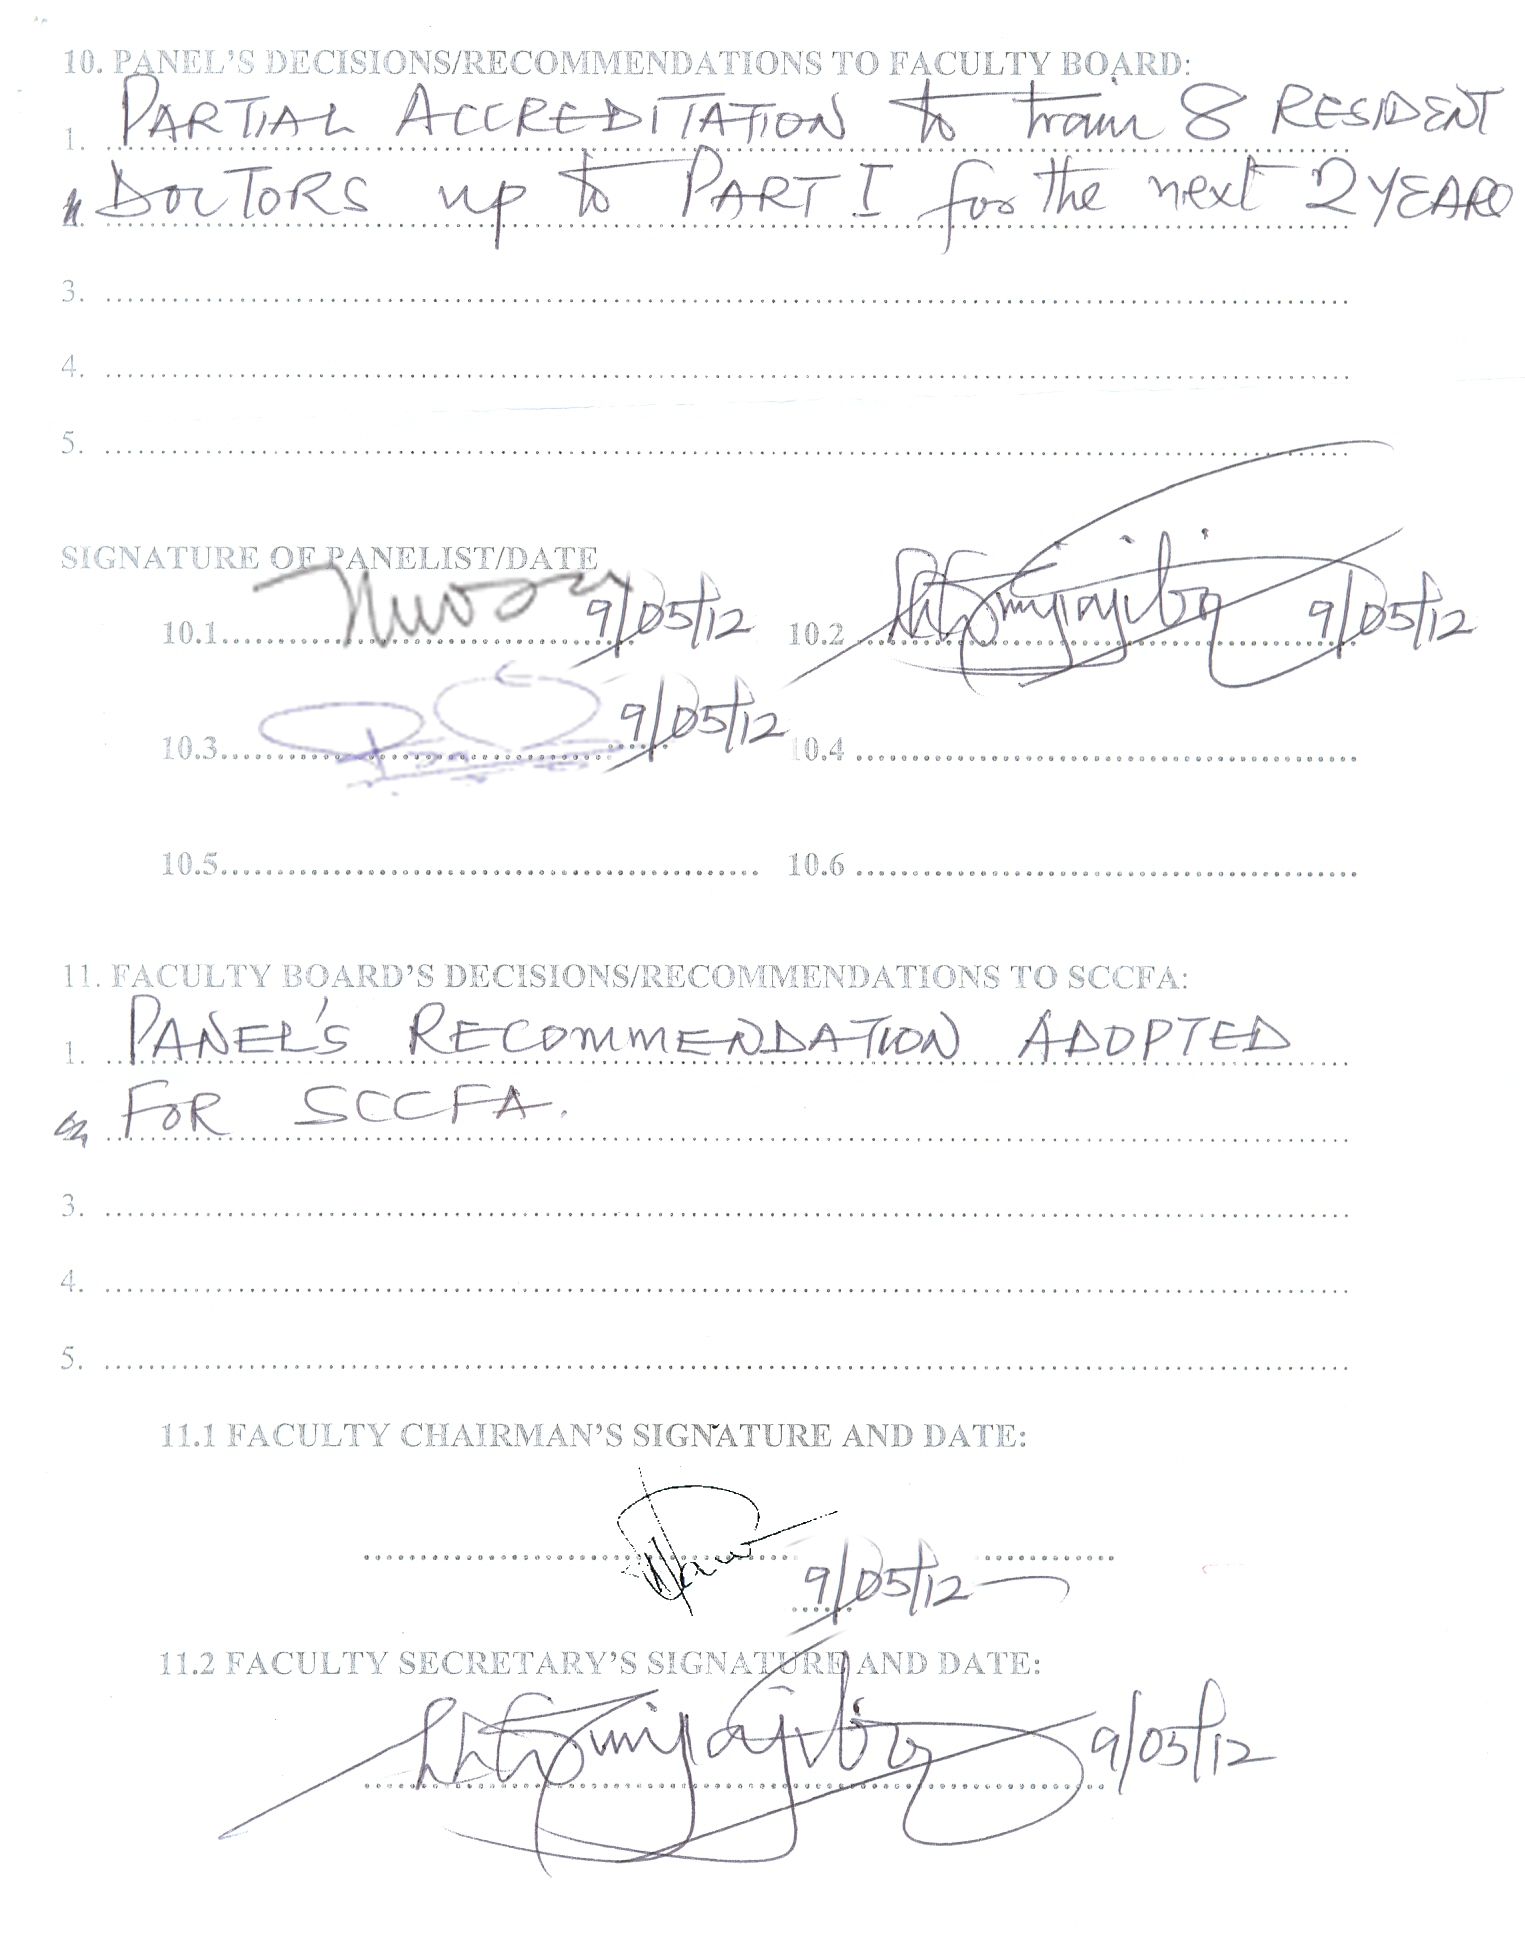 10. PANEL'S DECISIONS/RECOMMENDATIONS TO FACULTY BOARD:
1. PARTIAL ACCREDITATION to train 8 RESIDENT
DOCTORS up to PART I for the next 2 YEARS
3.
4.
5.
SIGNATURE OF PANELIST/DATE
10.1 9/05/12 10.2 9/05/12
10.3 9/05/12 10.4
10.5 10.6
11. FACULTY BOARD'S DECISIONS/RECOMMENDATIONS TO SCCFA:
1. PANEL'S RECOMMENDATION ADOPTED
FOR SCCFA.
3.
4.
5.
11.1 FACULTY CHAIRMAN'S SIGNATURE AND DATE:
9/05/12
11.2 FACULTY SECRETARY'S SIGNATURE AND DATE:
9/05/12